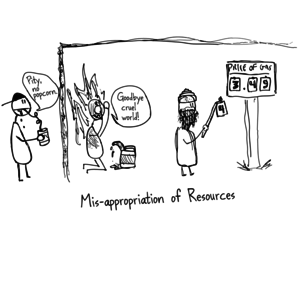 Pity,
no
popcorn.
Goodbye
cruel
world!
PRICE OF GAS
9
Mis-appropriation of Resources